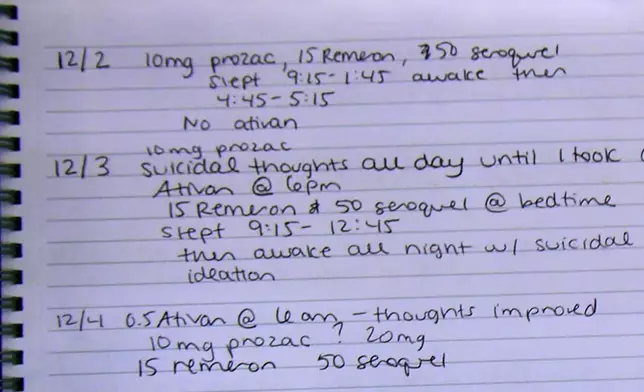 12/2 10mg prozac, 15 Remeron, 50 seroquel
slept 9:15-1:45 awake then
4:45-5:15
No ativan
10mg prozac
12/3 suicidal thoughts all day until I took
Ativan @ 6pm
15 Remeron & 50 seroquel @ bedtime
slept 9:15-12:45
then awake all night w/ suicidal
ideation
12/4 0.5 Ativan @ 6 am - thoughts improved
10mg prozac ? 20mg
15 remeron 50 seroquel